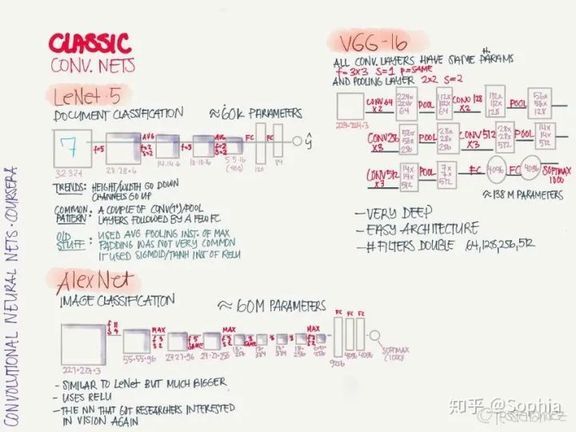 CLASSIC
CONV. NETS
LeNet-5
DOCUMENT CLASSIFICATION
≈60K PARAMETERS
7
f=5
AVG
f=2
S=2
f=5
AVG
f=2
S=2
FC
FC
ŷ
28·28·6
14·14·6
10·10·16
5·5·16
(400)
120
84
TRENDS: HEIGHT/WIDTH GO DOWN
CHANNELS GO UP
COMMON PATTERN: A COUPLE OF CONV(1+)/POOL
LAYERS FOLLOWED BY A FEW FC
OLD STUFF: USED AVG POOLING INST. OF MAX
PADDING WAS NOT VERY COMMON
IT USED SIGMOID/TANH INST OF RELU
AlexNet
IMAGE CLASSIFICATION
≈60M PARAMETERS
MAX
SAME
MAX
MAX
FC
FC
227·227·3
55·55·96
27·27·96
27·27·256
9216
4096
4096
SOFTMAX
(1000)
- SIMILAR TO LENET BUT MUCH BIGGER
- USES RELU
- THE NN THAT GOT RESEARCHERS INTERESTED
IN VISION AGAIN
VGG-16
ALL CONV. LAYERS HAVE SAME PARAMS
f=3x3 S=1 P=SAME
AND POOLING LAYER 2x2 S=2
224·224·3
CONV 64
x2
224x
224x
64
POOL
112x
112x
64
CONV 128
x2
112x
112x
128
POOL
56x
56x
128
CONV 256
x3
POOL
28x
28x
256
CONV 512
x3
28x
28x
512
POOL
14x
14x
512
CONV 512
x3
14x
14x
512
POOL
7x
7x
512
FC
4096
FC
4096
SOFTMAX
1000
≈138 M PARAMETERS
- VERY DEEP
- EASY ARCHITECTURE
- # FILTERS DOUBLE 64,128,256,512
CONVOLUTIONAL NEURAL NETS · COURSERA
知乎 @Sophia